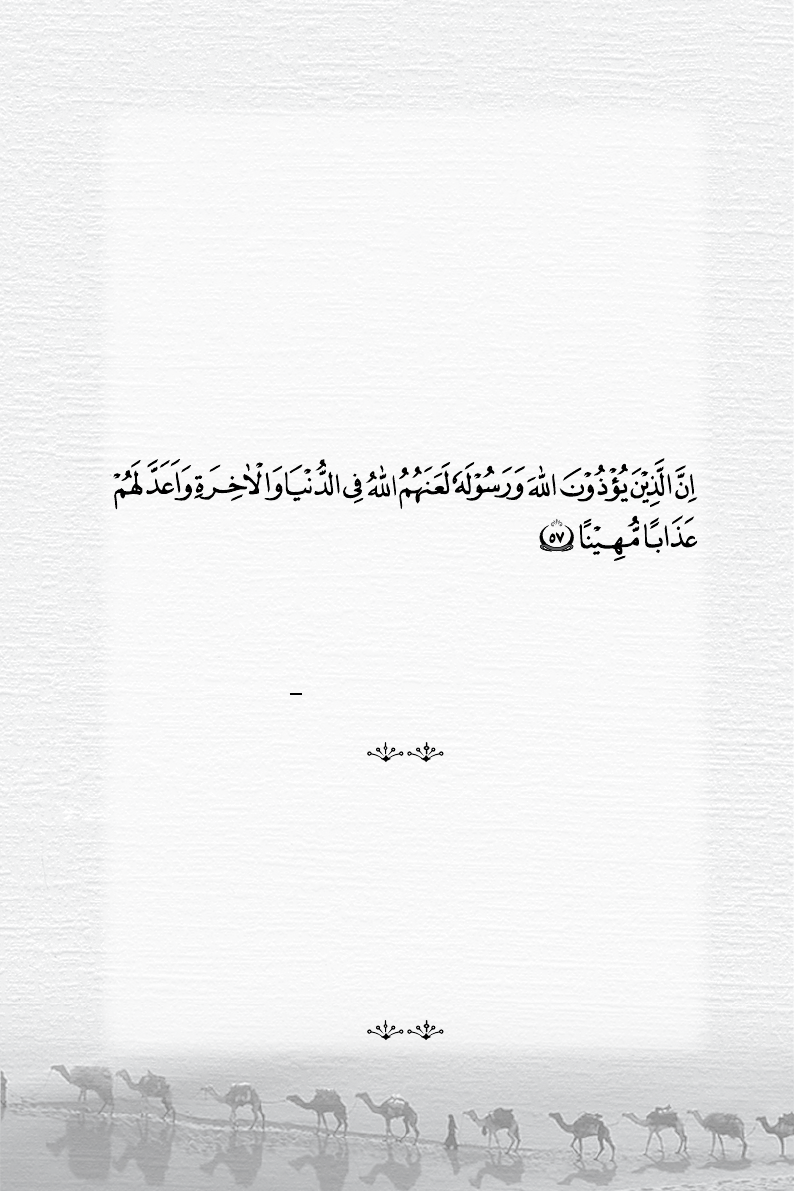 اِنَّ الَّذِيْنَ يُؤْذُوْنَ اللّٰهَ وَرَسُوْلَهٗ لَعَنَهُمُ اللّٰهُ فِى الدُّنْيَا وَالْاٰخِرَةِ وَاَعَدَّ لَهُمْ
عَذَابًا مُّهِيْنًا ٥٧
–